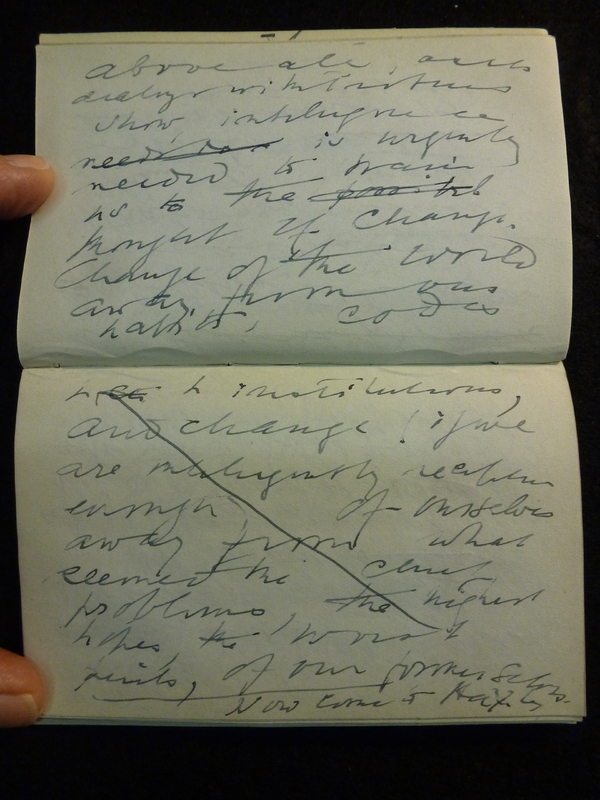 above all, our
dealings with
show intelligence
need is urgently
needed to train
us to the possible
thought of change.
Change of the world
away from our
habits, codes
& institutions,
and change (if we
are intelligently
enough) of ourselves
away from what
seemed the chief
problems, the highest
hopes, the worst
perils, of our former selves.
Now come to Huxley